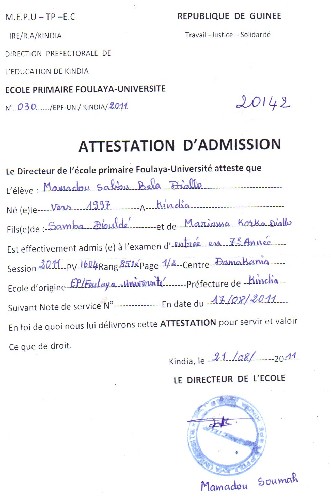 M.E.P.U – TP – E.C
REPUBLIQUE DE GUINEE
IRE/R.A/KINDIA
Travail – Justice – Solidarité
DIRECTION PREFECTORALE DE
L'EDUCATION DE KINDIA
ECOLE PRIMAIRE FOULAYA-UNIVERSITE
N° 030 /EPF-UN / KINDIA/ 2011
20142
ATTESTATION D'ADMISSION
Le Directeur de l'école primaire Foulaya-Université atteste que
L'élève : Mamadou Saliou Bela Diallo
Né (e)le Vers 1997 A Kindia
Fils(e)de : Samba Diouldé et de Mariama Diallo
Est effectivement admis (e) à l'examen d'entrée en 7è Année
Session 2011 PV 1604 Rang Page 1/2 Centre Damakania
Ecole d'origine EP/Foulaya Université Préfecture de Kindia
Suivant Note de service N° En date du 17/08/2011
En foi de quoi nous lui délivrons cette ATTESTATION pour servir et valoir
Ce que de droit.
Kindia, le 21 /08/ 2011
LE DIRECTEUR DE L'ECOLE
Mamadou Soumah